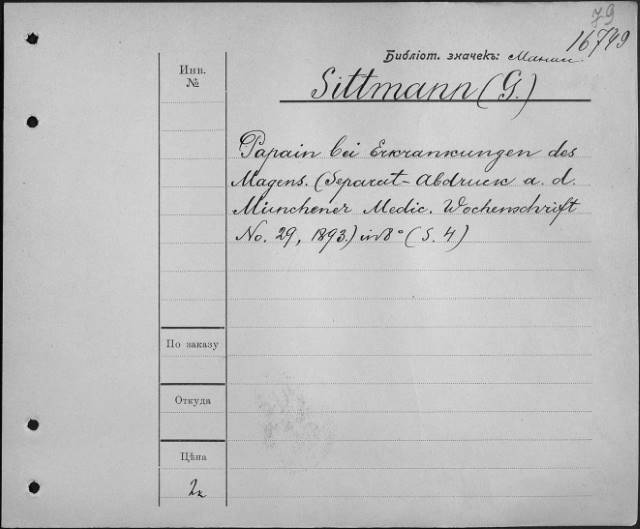 79
16749
Библіот. значекъ:
Инв.
№
Sittmann (G.)
Papain bei Erkrankungen des
Magens. (Separat-Abdruck a. d.
Münchener Medic. Wochenschrift
No. 29, 1893.) in 8° (S. 4)
По заказу
Откуда
Цѣна